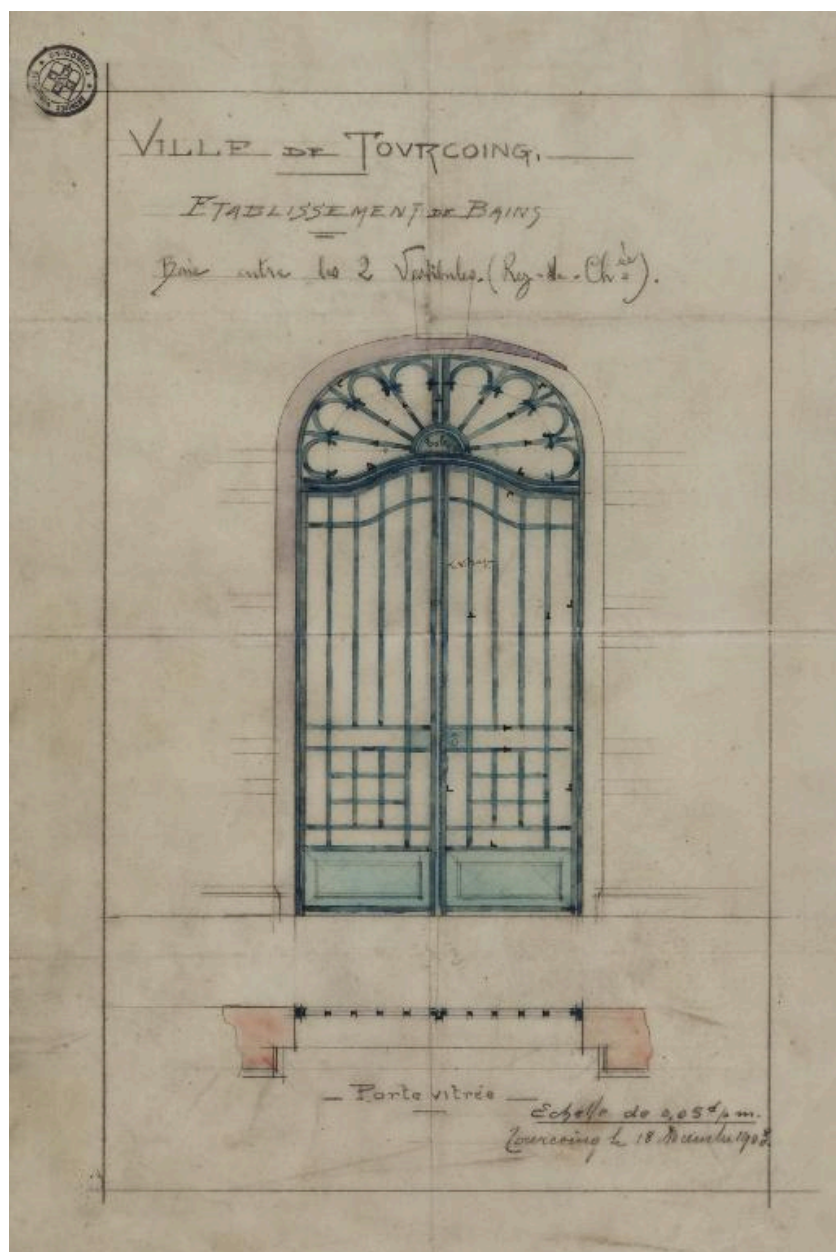 VILLE DE TOVRCOING.
ETABLISSEMENT DE BAINS
Baie entre les 2 Vestibules. (Rez-de-Chée).
Porte vitrée
Echelle de 0,05 p.m.
Tourcoing le 18